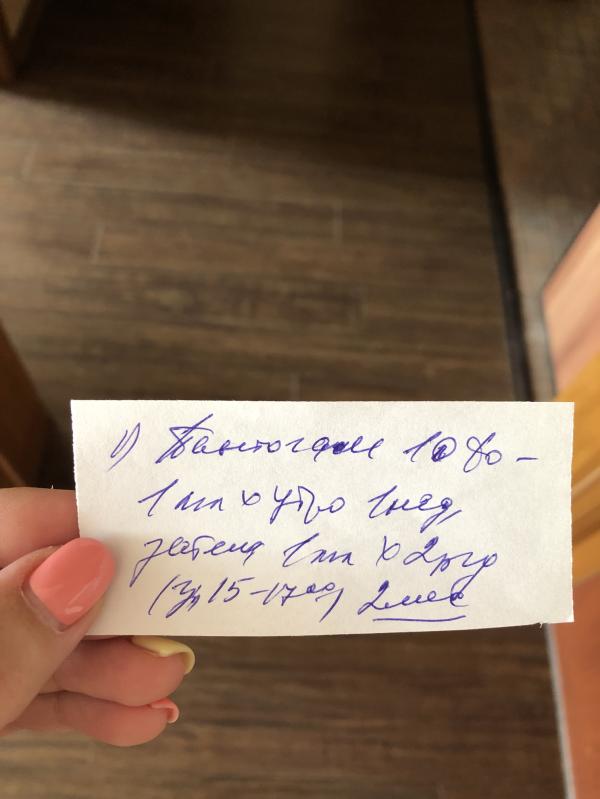 1) Пантогам 10%-
1 мл х утро 1 нед,
затем 1 мл х 2 р/д
(у, 15-17⁰⁰) 2 мес